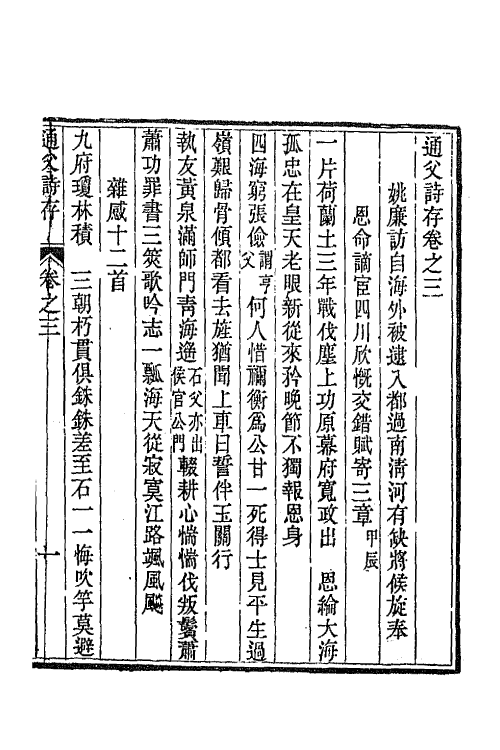 通父詩存卷之三
姚廉訪自海外被逮入都過南清河有缺將候旋奉
恩命謫宦四川欣慨交錯賦寄三章甲辰
一片荷蘭土三年戰伐塵上功原幕府寬政出　恩綸大海
孤忠在皇天老眼新從來矜晚節不獨報恩身
四海窮張儉謂亨父何人惜禰衡為公甘一死得士見平生過
嶺艱歸骨傾都看去旌猶聞上車日誓伴玉關行
執友黃泉滿師門青海遙石父亦出侯官公門輟耕心惴惴伐叛鬢蕭
蕭功罪書三篋歌吟志一瓢海天從寂寞江路颯風飈
雜感十二首
九府瓊林積　三朝朽貫俱銖銖差至石一一悔吹竽莫避
通父詩存　卷之三　一